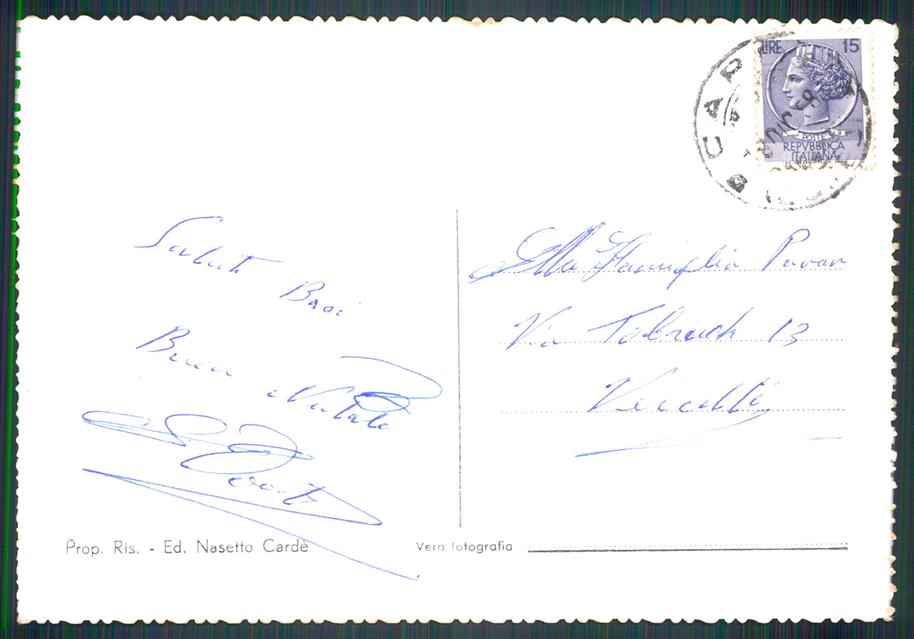 LIRE 15
POSTE
REPVBBLICA
ITALIANA
Saluti
Baci
Buon Natale
Alla Famiglia Pavan
Via Tobruck 13
Vercelli
Prop. Ris. - Ed. Nasetto Cardè
Vera fotografia